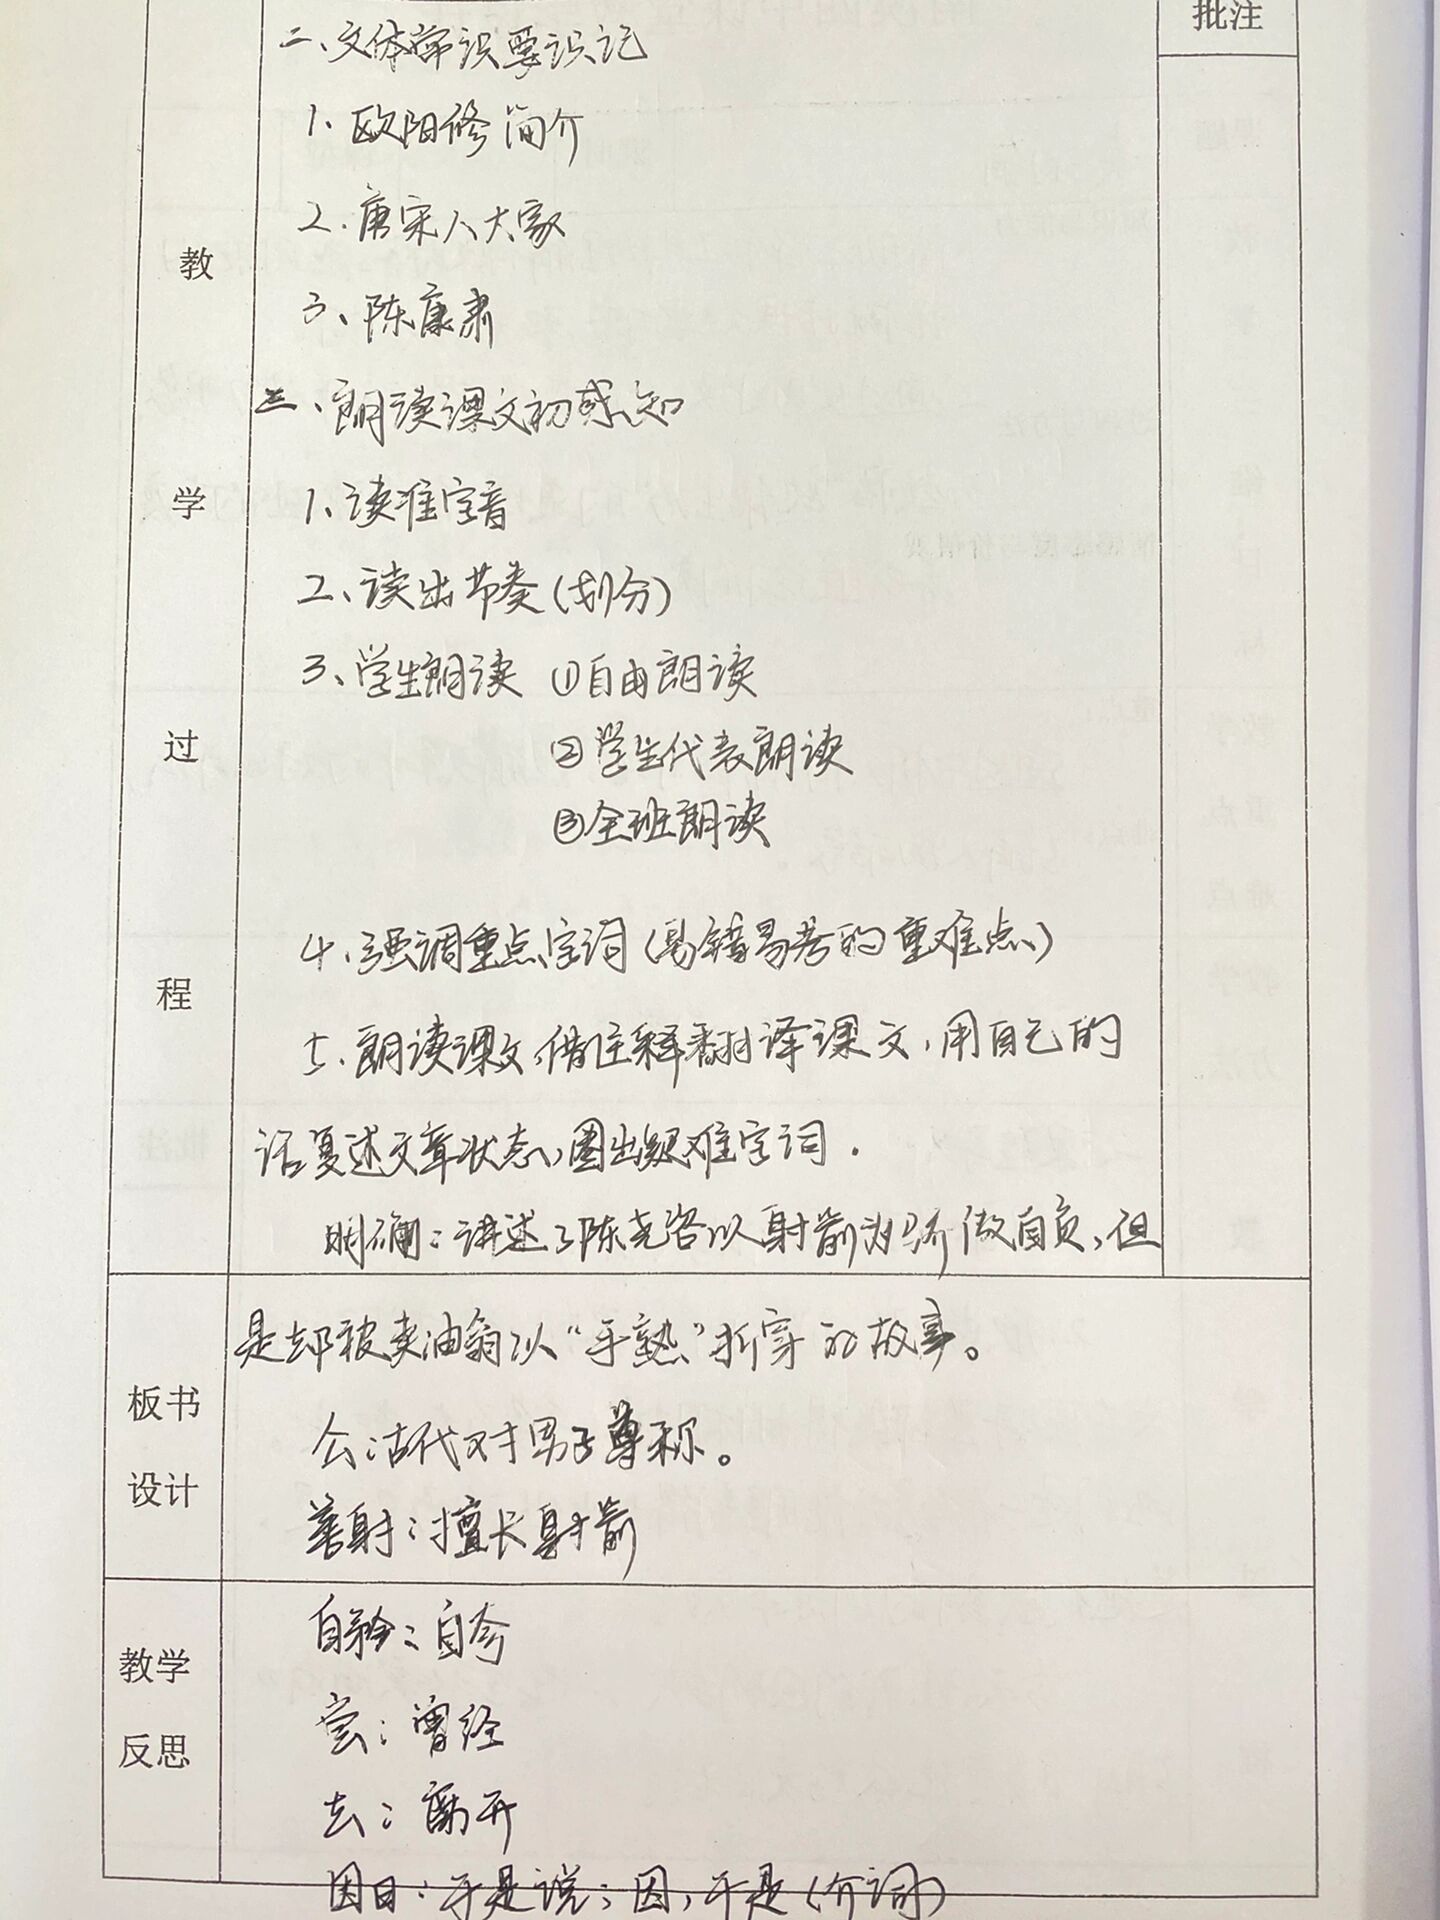 批注
二、文体常识要识记
1、欧阳修简介
2、唐宋八大家
3、陈康肃
三、朗读课文初感知
1、读准字音
2、读出节奏(划分)
3、学生朗读 ①自由朗读
②学生代表朗读
③全班朗读
4、强调重点字词(易错易考的重难点)
5、朗读课文,借注释翻译课文,用自己的
话复述文章状态,圈出疑难字词.
明确:讲述了陈尧咨以射箭为骄做自负,但
教
学
过
程
是却被卖油翁以“手熟”折穿的故事。
公:古代对男子尊称。
善射:擅长射箭
板书
设计
自矜:自夸
尝:曾经
去:离开
因曰:于是说;因,于是(介词)
教学
反思